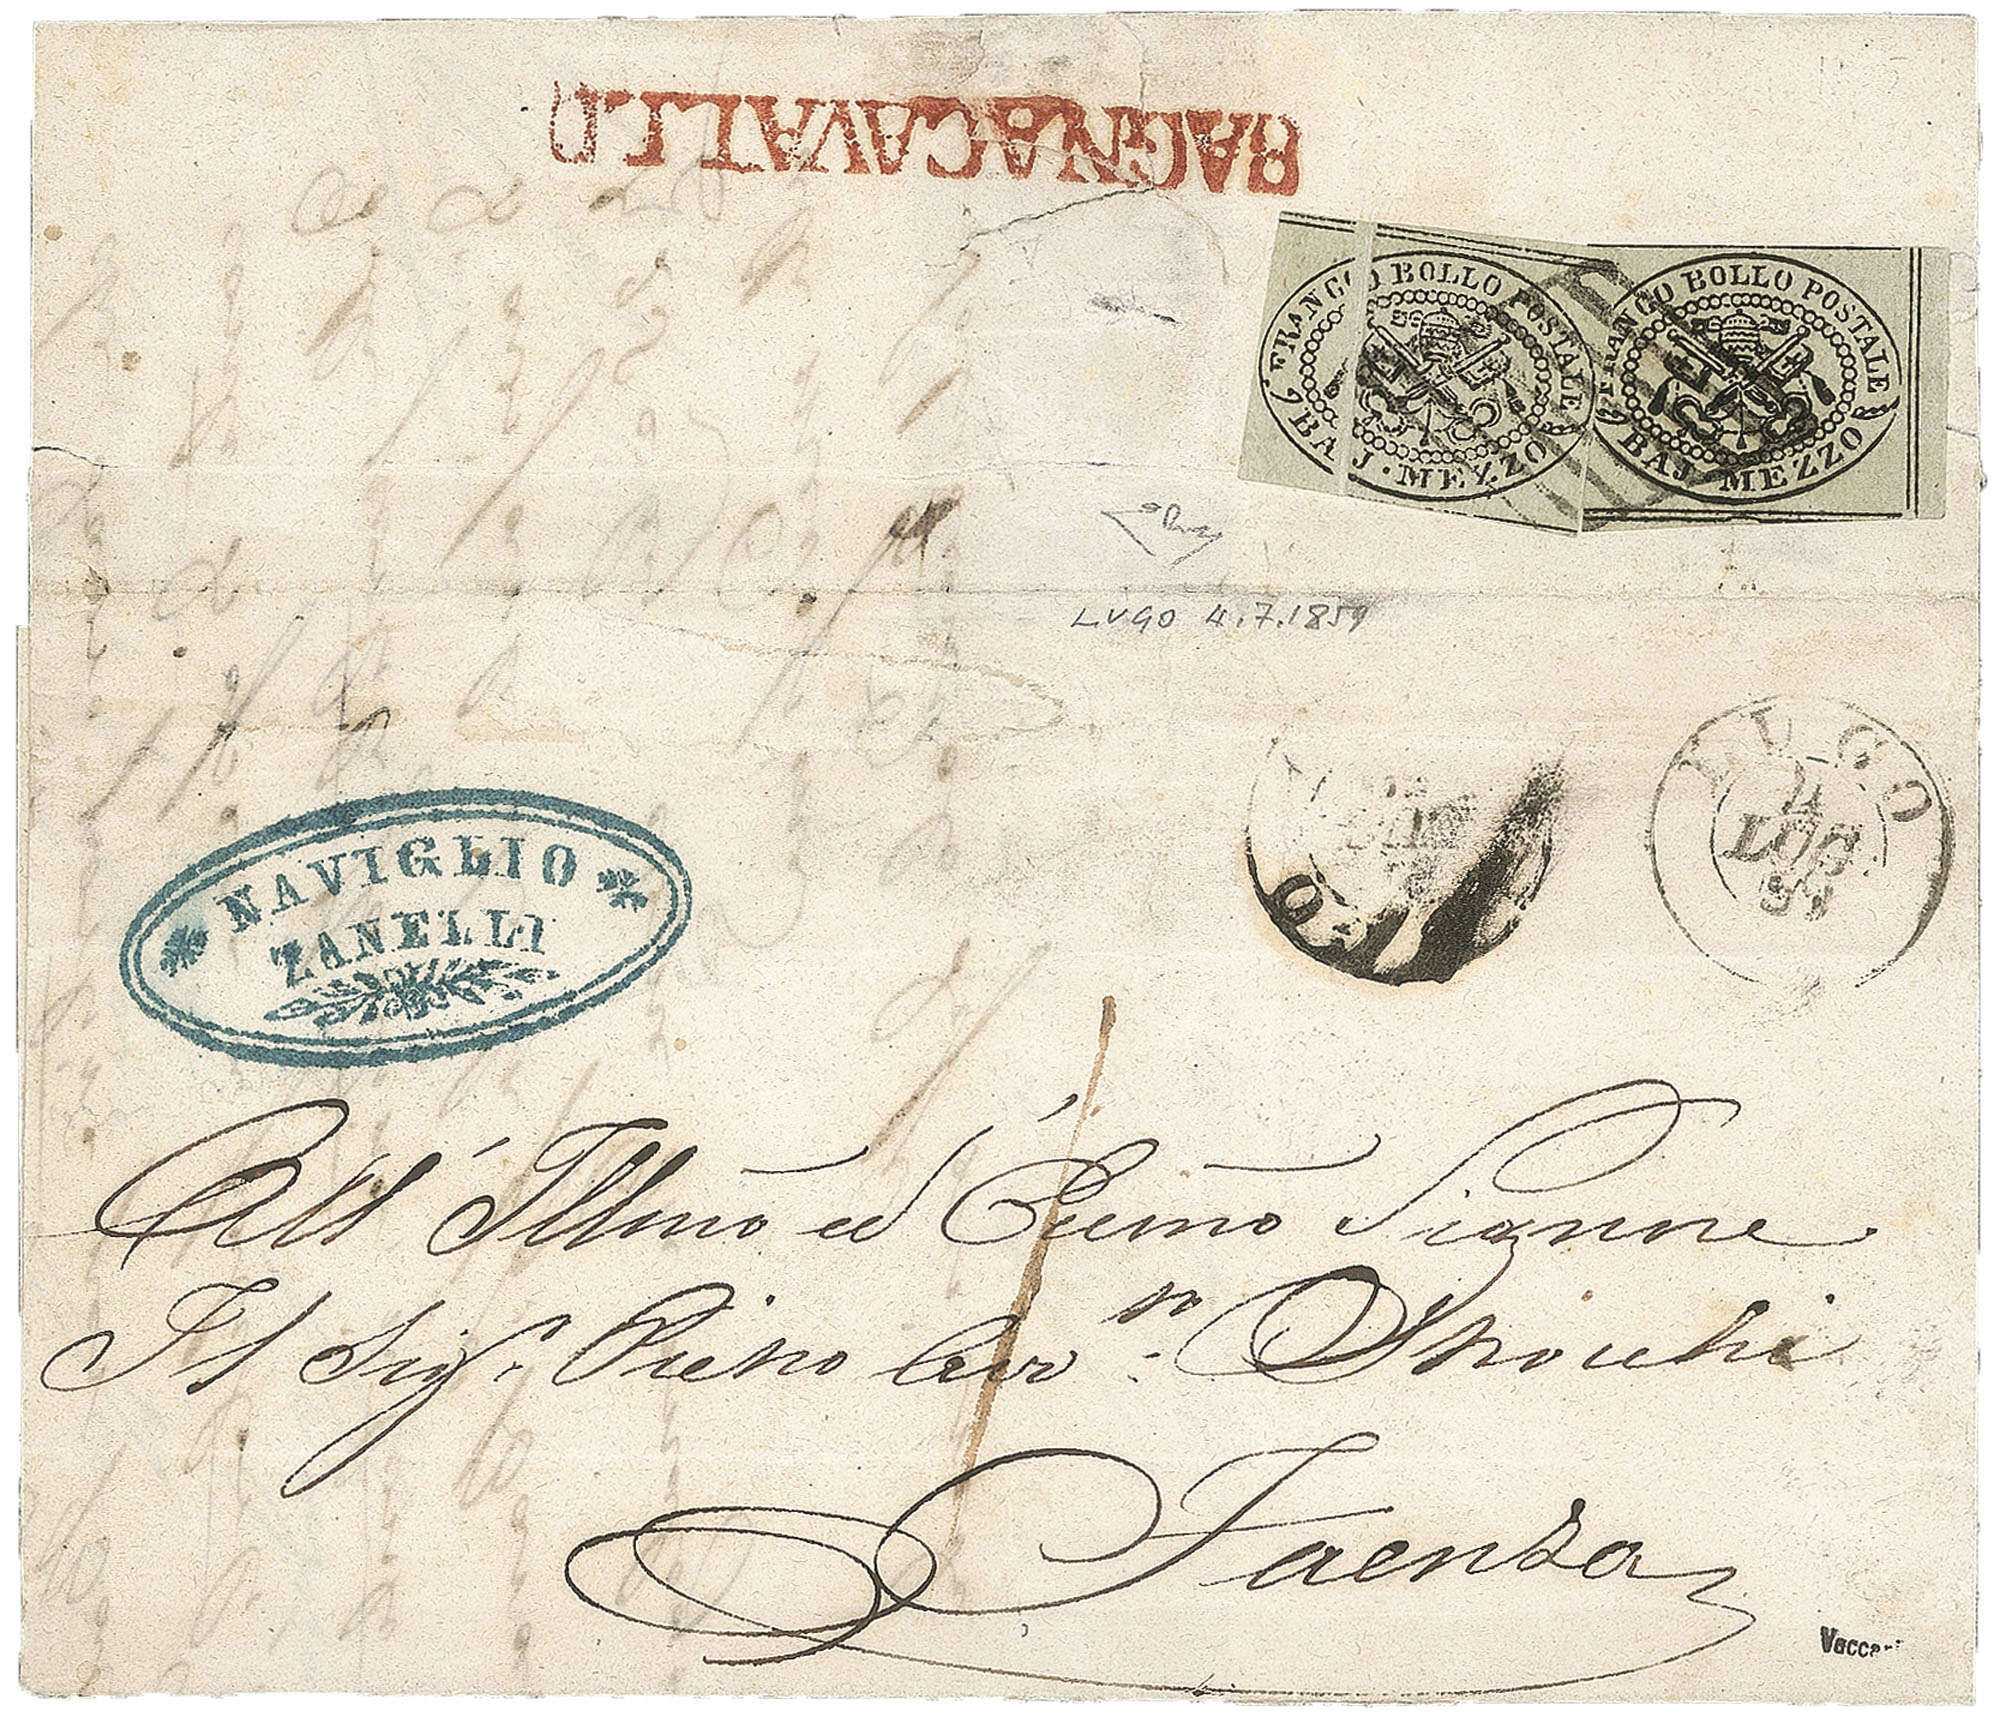 BAGNACAVALLO
FRANCO BOLLO POSTALE
BAJ. MEZZO
FRANCO BOLLO POSTALE
BAJ. MEZZO
LUGO 4.7.1859
LUGO
4
LUG
59
NAVIGLIO
ZANELLI
All' Illmo ed Ecc̃mo Signore
Il Sigr. Pietro Cav
Faenza
Vaccari